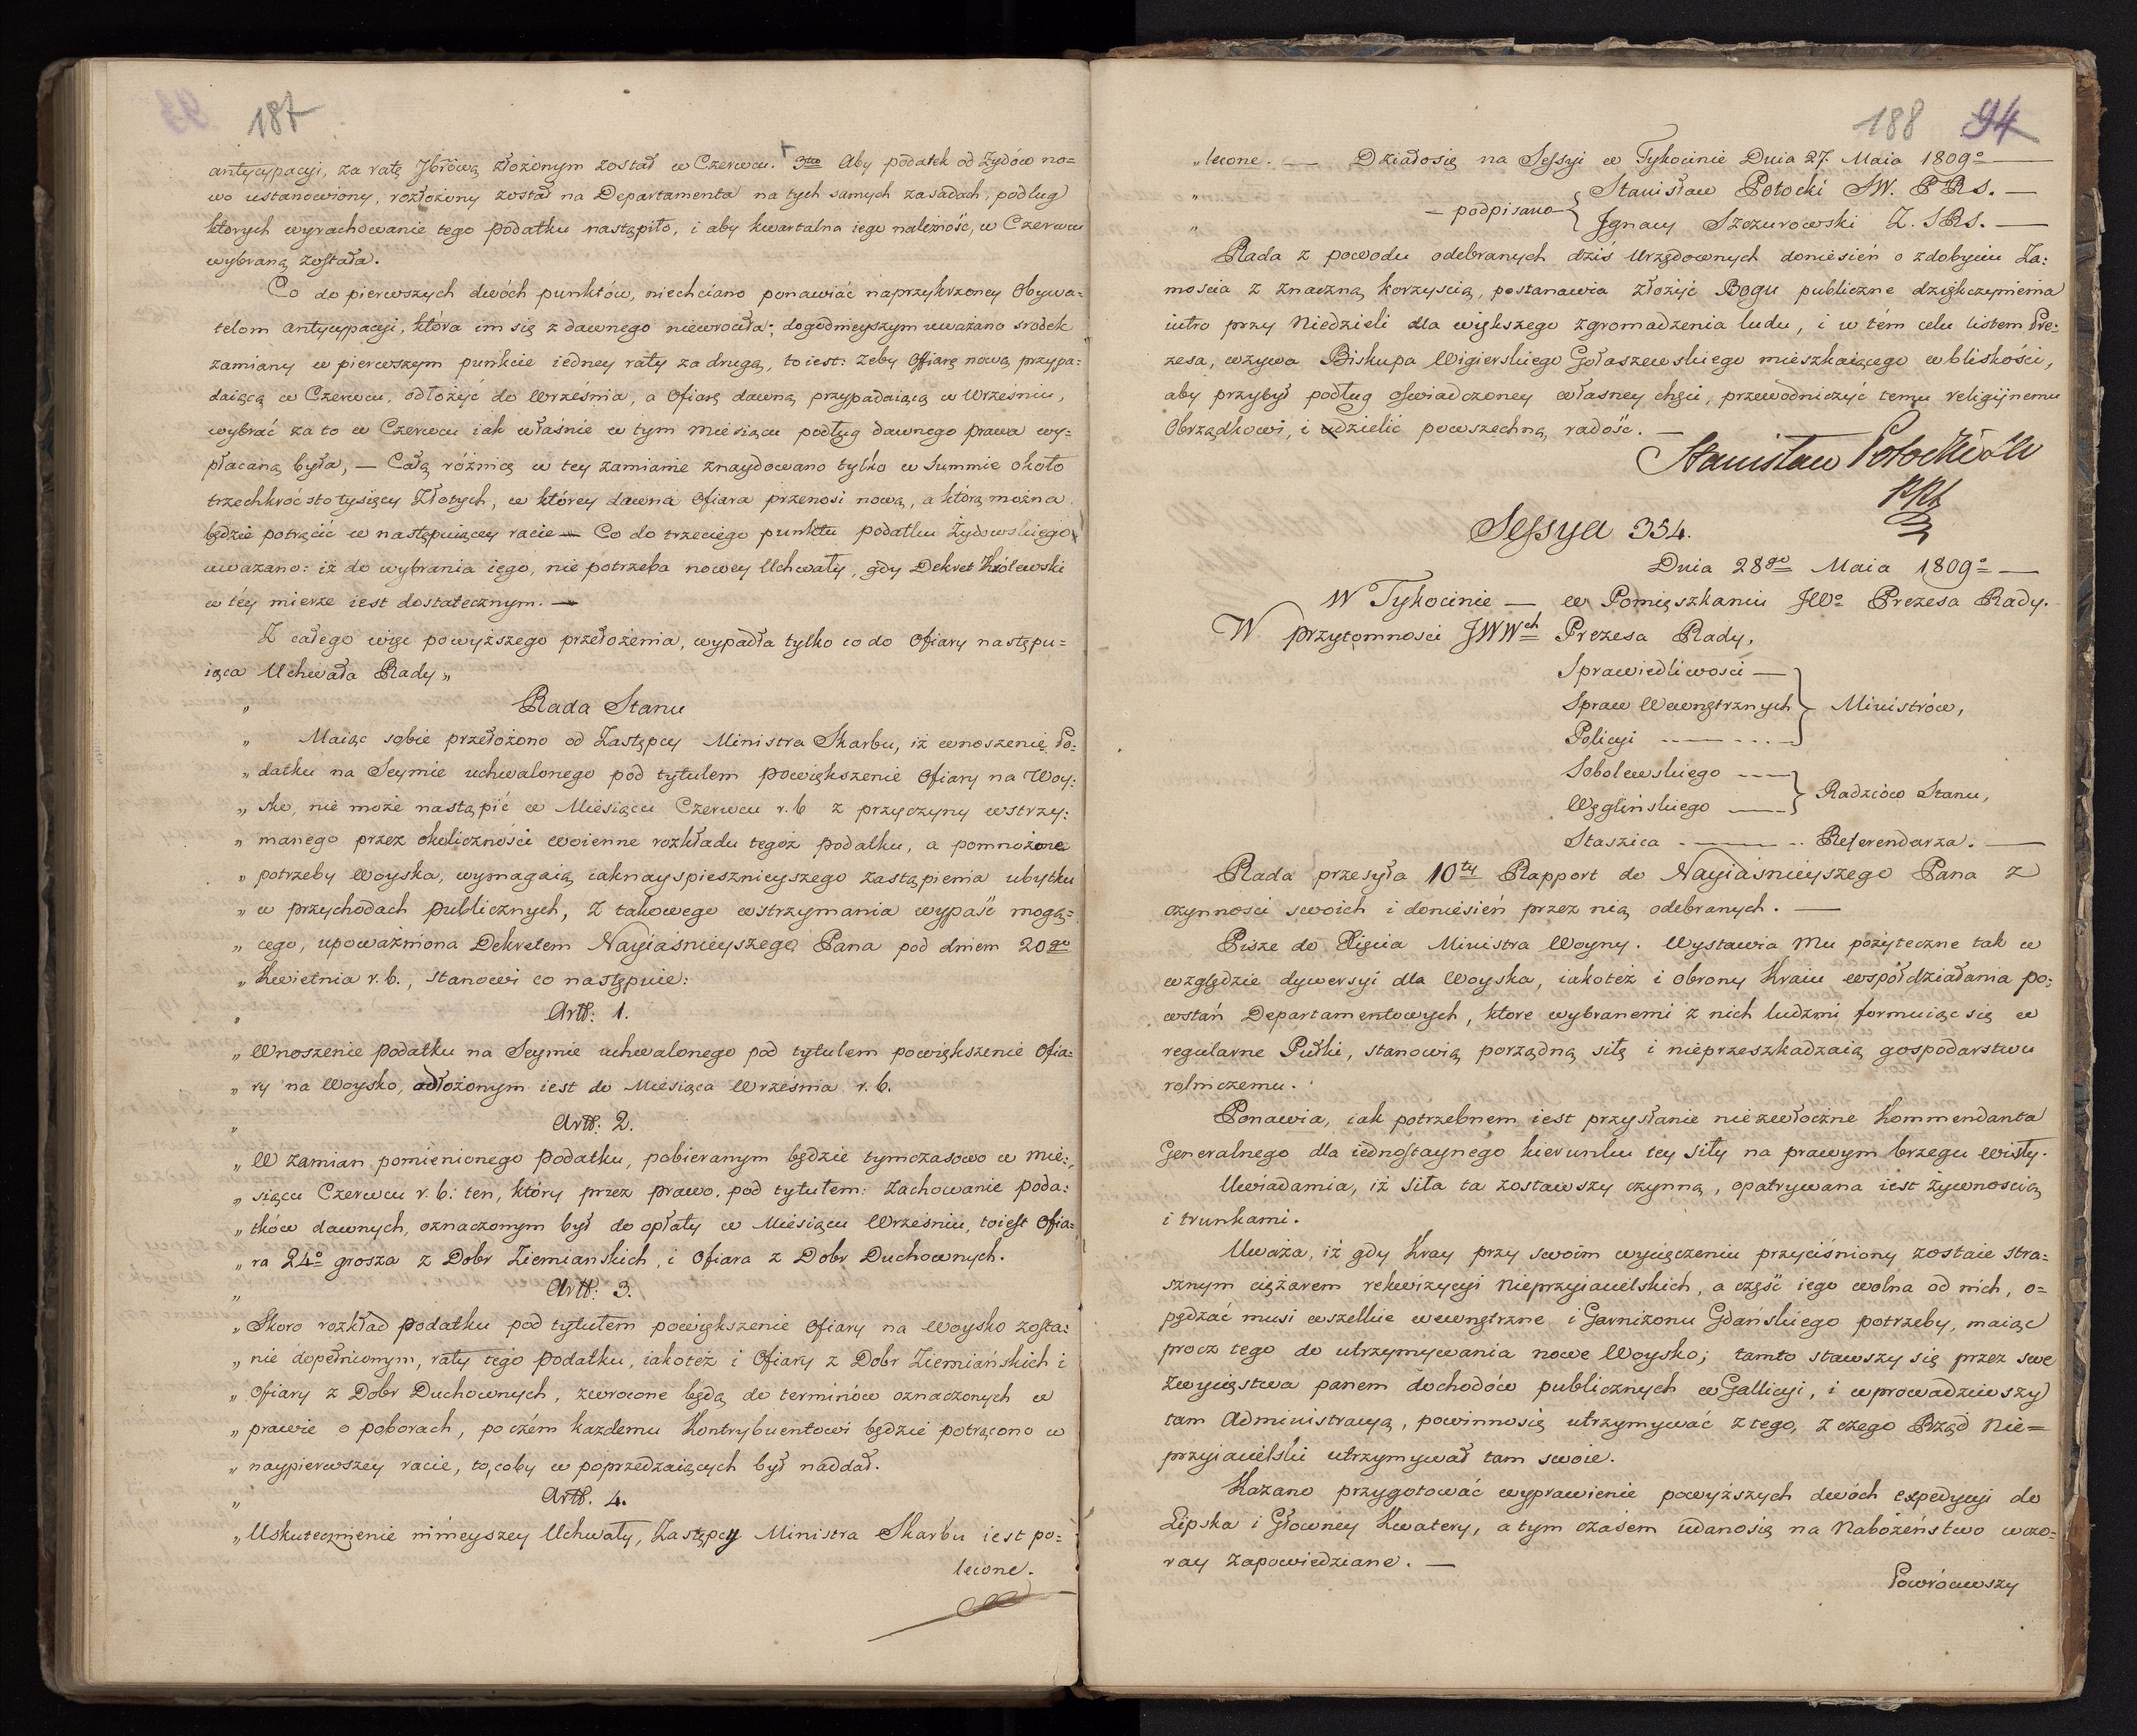 187
antycypacyi, za ratę 7brową złożonym został w Czerwcu. 3tio Aby podatek od Żydów no=
wo ustanowiony, rozłożony został na Departamenta na tych samych zasadach, podług
których wyrachowanie tego podatku nastąpiło, i aby kwartalna iego należność, w Czerwcu
wybraną została.
Co do pierwszych dwóch punktów, niechciano ponawiać naprzykrzoney Obywa=
telom antycypacyi, która im się z dawnego niewróciła; dogodnieyszym uważano srodek
zamiany w pierwszym punkcie iedney raty za drugą, to iest: żeby Ofiarę nową przypa=
daiącą w Czerwcu, odłożyć do Września, a Ofiarę dawną przypadaiącą w Wrześniu,
wybrać za to w Czerwcu iak właśnie w tym Miesiącu podług dawnego prawa wy=
płacaną była, — Całą różnicę w tey zamianie znaydowano tylko w Summie około
trzechkroć sto tysięcy Złotych, w którey dawna Ofiara przenosi nową, a którą można
będzie potrącić w następuiącey racie — Co do trzeciego punktu podatku Żydowskiego
uważano: iż do wybrania iego, nie potrzeba nowey Uchwały, gdy Dekret Królewski
w téy mierze iest dostatecznym. —
Z całego więc powyższego przełożenia, wypadła tylko co do Ofiary następu=
iąca Uchwała Rady „
„ Rada Stanu
„ Maiąc sobie przełożono od Zastępcy Ministra Skarbu, iż wnoszenie Po:
„ datku na Seymie uchwalonego pod tytułem powiększenie Ofiary na Woy:
„ sko, nie może nastąpić w Miesiącu Czerwcu r. b z przyczyny wstrzy:
„ manego przez okoliczności woienne rozkładu tegoż podatku, a pomnożone
„ potrzeby Woyska, wymagaią iaknayspiesznieyszego zastąpienia ubytku
„ w przychodach publicznych, z takowego wstrzymania wypaść mogą=
„ cego, upoważniona Dekretem Nayiaśnieyszego Pana pod dniem 20go
„ Kwietnia r. b., stanowi co następuie:
„ Artł: 1.
„ Wnoszenie podatku na Seymie uchwalonego pod tytułem powiększenie Ofia:
„ ry na Woysko, odłożonym iest do Miesiąca Września r. b.
„ Artł: 2.
„ W zamian pomienionego podatku, pobieranym będzie tymczasowo w Mie:
„ siącu Czerwcu r. b: ten, który przez prawo, pod tytułem: Zachowanie poda:
„ tków dawnych, oznaczonym był do opłaty w Miesiącu Wrześniu, toiest Ofia:
„ ra 24o grosza z Dobr Ziemianskich, i Ofiara z Dobr Duchownych.
„ Artł: 3.
„ Skoro rozkład podatku pod tytułem powiększenie Ofiary na Woysko zosta:
„ nie dopełnionym, raty tego podatku, iakoteż i Ofiary z Dobr Ziemiańskich i
„ Ofiary z Dobr Duchownych, zwrocone będą do terminów oznaczonych w
„ prawie o poborach, poczém każdemu Kontrybuentowi będzie potrącono w
„ naypierwszey racie, to, coby w poprzedzaiących był naddał.
„ Artł. 4.
„ Uskutecznienie ninieyszey Uchwały, Zastępcy Ministra Skarbu iest po:
lecone.
188 94
„ lecone. — Działosię na Sessyi w Tykocinie Dnia 27. Maia 1809o —
„ — podpisano { Stanisław Potocki SW. PRS. —
„ Ignacy Szczurowski Z. SRS. —
Rada z powodu odebranych dziś urzędownych doniesień o zdobyciu Za:
mościa z znaczną korzyścią, postanawia złożyć Bogu publiczne dziękczynienia
iutro przy Niedzieli dla większego zgromadzenia ludu, i w tém celu listem Pre:
zesa, wzywa Biskupa Wigierskiego Gołaszewskiego mieszkaiącego w bliskości,
aby przybył podług oświadczoney własney chęci, przewodniczyć temu religiynemu
Obrządkowi, i udzielić powszechną radość. —
Stanisław Potocki SW
PRS
Sessya 354.
Dnia 28go Maia 1809o —
W Tykocinie — w Pomięszkaniu JWo Prezesa Rady.
W przytomności JWWch Prezesa Rady,
Sprawiedliwości —
Spraw Wewnętrznych } Ministrów,
Policyi
Sobolewskiego
Węglińskiego } Radzców Stanu,
Staszica Referendarza. —
Rada przesyła 10ty Rapport do Nayiaśnieyszego Pana z
czynności swoich i doniesień przez nią odebranych. —
Pisze do Xięcia Ministra Woyny. Wystawia Mu pożyteczne tak w
względzie dywersyi dla Woyska, iakoteż i obrony Kraiu współdziałania po:
wstań Departamentowych, które wybranemi z nich ludźmi formuiąc się w
regularne Pułki, stanowią porządną siłę i nieprzeszkadzaią gospodarstwu
rolniczemu.
Ponawia, iak potrzebnem iest przysłanie niezwłoczne Kommendanta
Generalnego dla iednostaynego kierunku tey siły na prawym brzegu Wisły.
Uwiadamia, iż siła ta zostawszy czynną, opatrywana iest żywnością
i trunkami.
Uważa, iż gdy Kray przy swoim wycięczeniu przyciśniony zostaie stra=
sznym ciężarem rekwizycyi Nieprzyiacielskich, a część iego wolna od nich, o=
pędzać musi wszelkie wewnętrzne i Garnizonu Gdańskiego potrzeby, maiąc
procz tego do utrzymywania nowe Woysko; tamto stawszy się przez swe
zwycięstwa panem dochodów publicznych w Gallicyi, i wprowadziwszy
tam Administracyą, powinnosię utrzymywać z tego, z czego Rząd Nie=
przyiacielski utrzymywał tam swoie.
Kazano przygotować wyprawienie powyższych dwóch expedycyi do
Lipska i Głowney Kwatery, a tym czasem udanosię na Nabożeństwo wczo=
ray zapowiedziane. —
Powróciwszy